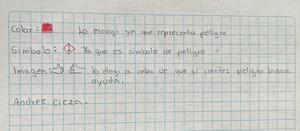 Color: Lo escogi ya que representa peligro
Simbolo: Ya que es simbolo de peligro
Imagen: lo elegi a cabo de que si sientes peligro busca
ayuda.
Andree Cieza.